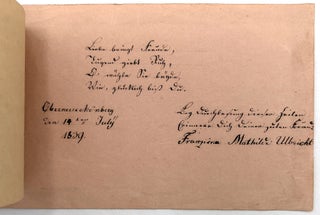 Liebe bringt Freude,
Tugend giebt Ruh,
O! wähle Sie beyde,
Wie glücklich bist Du.
den 14ten July
1839.
Bey Durchlesung dieser Zeilen
Erinnere Dich Deiner guten Freundin
Franziska Mathilde Ulbricht